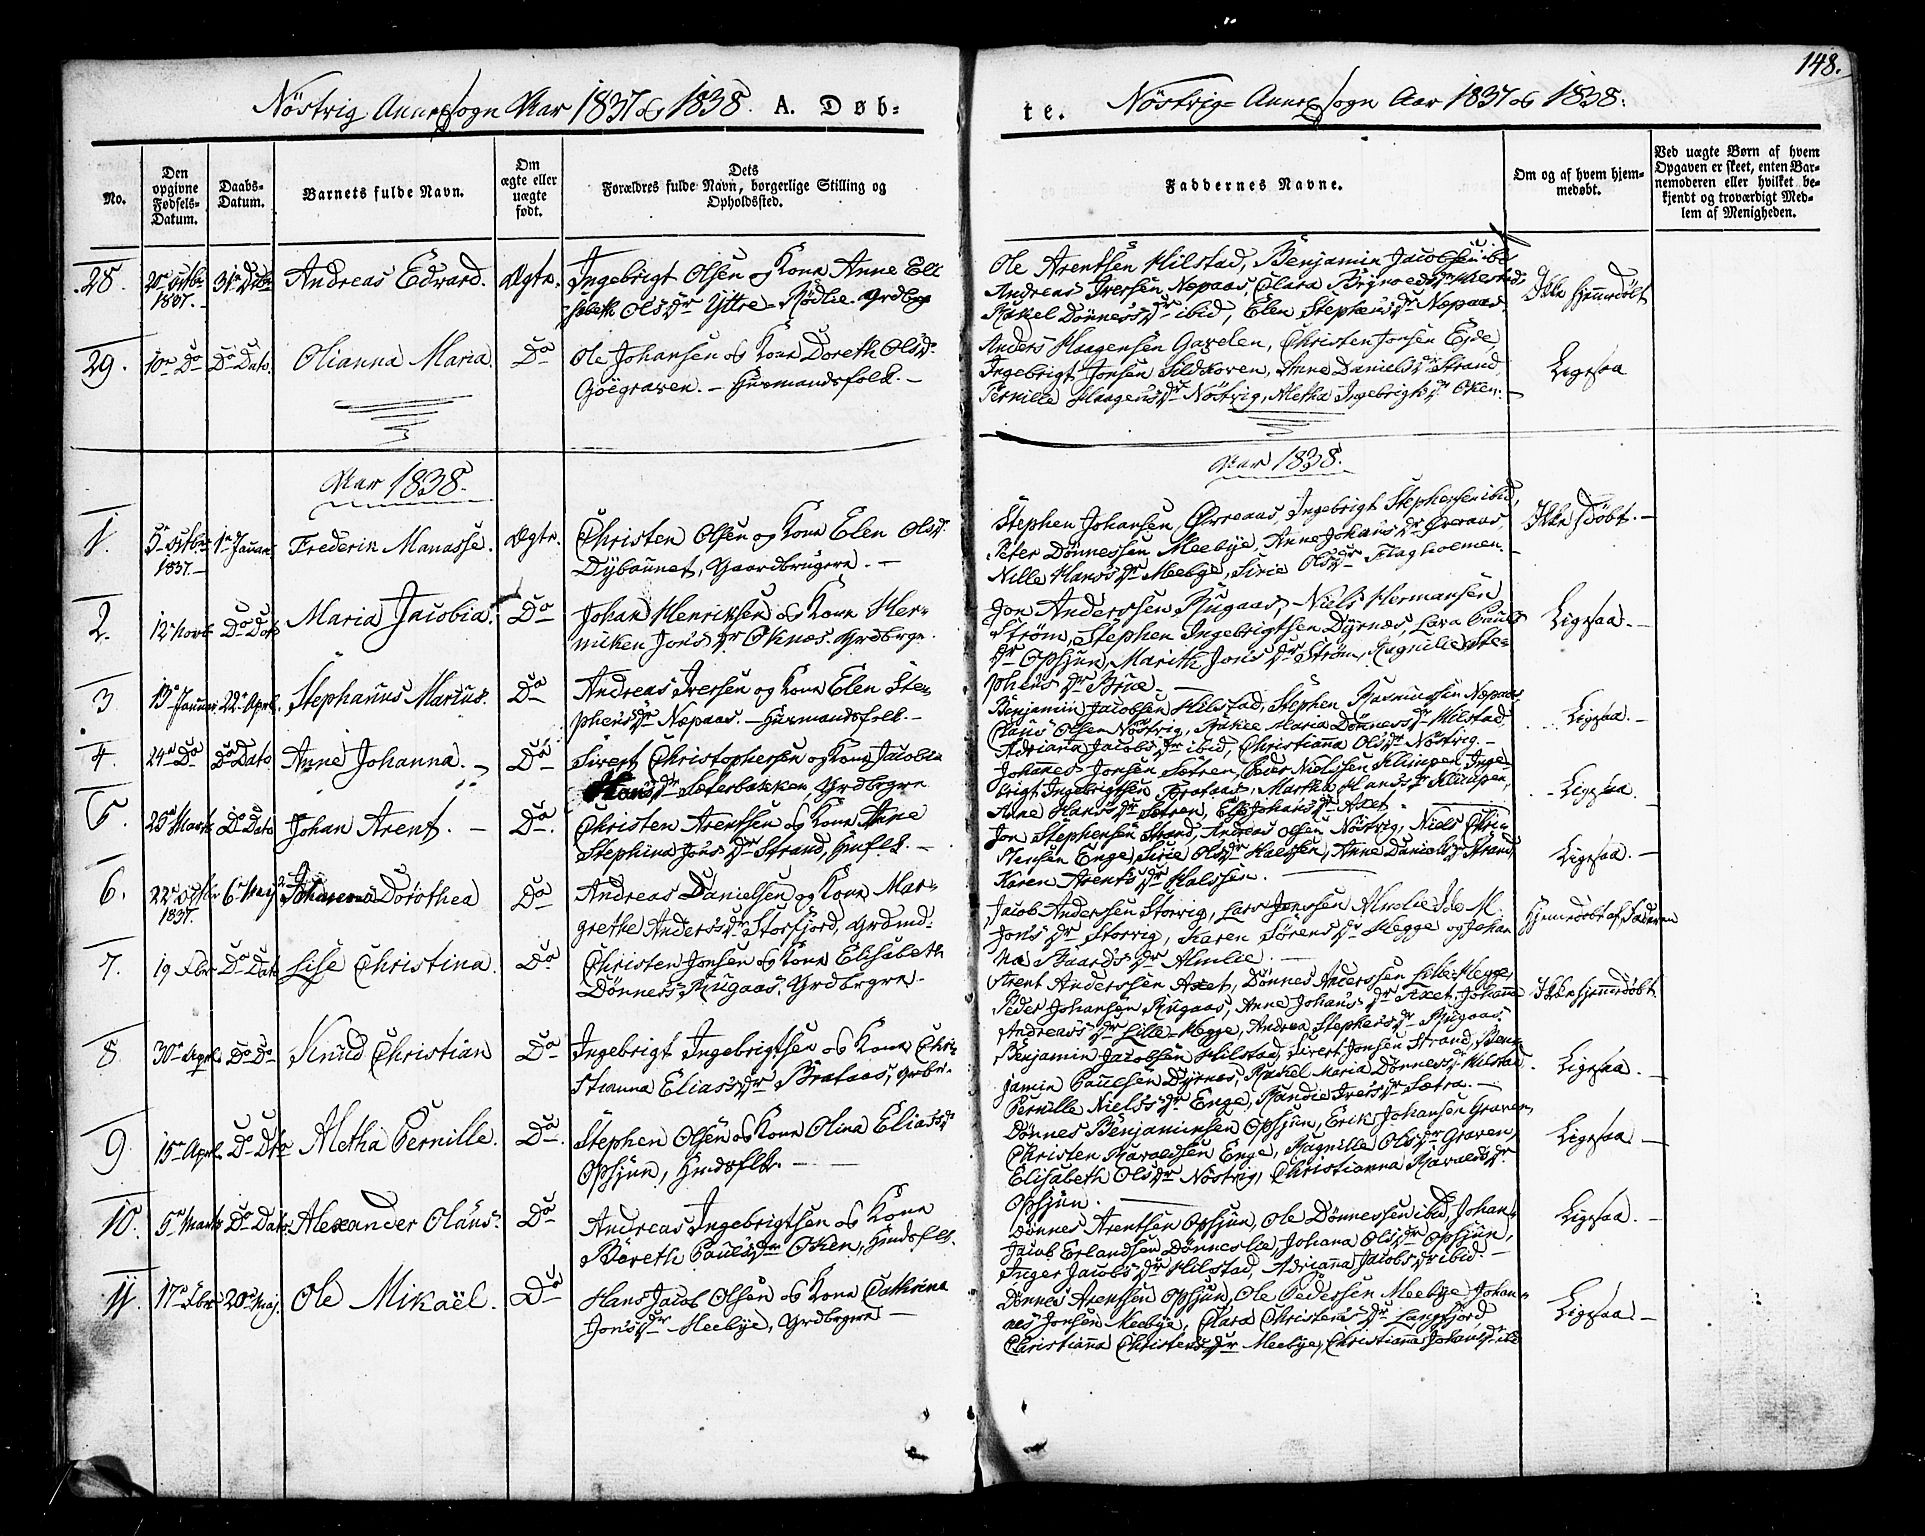 148.
Nöstvig Annexsogn Aar 1837 og 1838. A. Døb-
te. Nöstvig-Annexsogn Aar 1837 og 1838.
No.
Den opgivne Fødsels-Datum.
Daabs-Datum.
Barnets fulde Navn.
Om ægte eller uægte født.
Dets Forældres fulde Navn, borgerlige Stilling og Opholdssted.
Faddernes Navne.
Om og af hvem hjemmedøbt.
Ved uægte Børn af hvem Opgaven er skeet, enten Barnemoderen eller hvilket bekjendt og troværdigt Medlem af Menigheden.
28. 1837. Andreas Edvard. Ægte. Ingebrigt Olsen og Kone Anne Eli-
sabeth Olsdr Yttre-Rödlie Grdbrgr
Ole Arentsen Hilstad, Benjamin Jacobsen ibd
Andreas Iversen Næpaas, Clara
Rakel Dönnesdr ibid, Elen Stephensdr Næpaas.
Ikke hjemmedöbt
29. 10de Do Do Dato. Olianna Maria. Do Ole Johansen og Kone Doreth Olsdr
Göegraven. - Huusmandsfolk. -
Anders Haagensen Gavelen, Christen Jonsen Eide,
Ingebrigt Jonsen Sildkoven, Anne Danielsdr Strand,
Pernille Haagensdr Nöstvig, Aletha Ingebrigtsdr Oken. -
Ligesaa
Aar 1838.
Aar 1838.
1. 5te 1837. 1te Januar. Frederik Manasse. Ægte. Christen Olsen og Kone Elen Olsdr
Dybaunet, Gaardbrugere. -
Stephen Johansen Övreaas, Ingebrigt Stephensen ibid,
Peter Dönnessen Meebye, Anne Johansdr Överaas,
Nille Hansdr Meebye, Sirie Olsdr Flagholmen.
Ikke döbt. -
2. 12te Novbr Do Dato Maria Jacobia. Do Johan Henriksen og Kone Her-
nikken Jonsdr Oknæs. Grdbrgr.
Jon Anderssen Rugaas, Niels Hermansen
Ström, Stephen Ingebrigtsen Dyrnæs, Lava Pauls
dr Opsjun, Marith Jonsdr Ström, Ragnille Ste-
phensdr Brue. -
Ligesaa. -
3 13de Januar 22de April Stephanus Marius. Do Andreas Iversen og Kone Elen Ste-
phensdr Næpaas. - Huusmandsfolk. -
Benjamin Jacobsen Hilstad, Stephen Rasmussen Næpaas,
Claus Olsen Nöstvig, Rakel Maria Dönnesdr Hilstad,
Adrianna Jacobsdr ibid, Christianna Olsdr Nöstvig. -
Ligesaa. -
4. 24de Do Do Dato Anne Johanna. Do Sivert Christophersen og Kone Jacobia
Hansdr Sæterbakken, Grdbrgre
Johannes Jonsen Sætren, Peder Nielssen Klumpen, Inge-
brigt Ingebrigtsen Brataas, Marthe Hansdr Klumpen,
Anne Hansdr Sætren, Else Johansdr Axet.
Ligesaa.
5. Marts Do Dato Johan Arent. - Do. Christen Arentsen og Kone Anne
Stephina Jonsdr Strand, -
Jon Stephensen Strand, Andreas Olsen Nöstvig, Niels Chri-
stensen Enge, Sirie Olsdr Halssen, Anne Danielsdr Strand,
Karen Arentsdr Halssen. -
Ligesaa. -
6. 22de 1837. 6te Maj Johanna Dorothea Do Andreas Danielsen og Kone Mar-
grethe Andersdr Storfjord,
Jacob Anderssen Storvig, Lars Jenssen Almlie, Ide M.
Jonsdr Storvig, Karen Sörensdr Hegge og Johan-
na Baardsdr Almlie. -
Hjemmedöbt af Faderen
7. 19 Do Dato Lise Christina. Do Christen Jonsen og Kone Elisabeth
Dönnesdr Rugaas, Grdbrgre.
Arent Anderssen Axet, Dönnes Anderssen Lille-Hegge,
Peder Johansen Rugaas, Anne Johansdr Axet, Johanna
Andreasdr Lille-Hegge, Andrea Stephensdr Rugaas.
Ikke hjemmedöbt.
8. 30te April. Do Do Knud Christian Do Ingebrigt Ingebrigtsen og Kone Chri-
stianna Eliasdr Brataas,
Benjamin Jacobsen Hilstad, Sivert Jonsen Strand, Ben-
jamin Paulsen Dyrnæs, Rakel Maria Dönnesdr Hilstad.
Pernille Nielsdr Enge, Randie Iversdr Sætra. -
Ligesaa. -
9 15de April. Do Dto Aletha Pernille. Do. Stephen Olsen og Kone Olina Eliasdr
Opsjun, -
Dönnes Benjaminsen Opsjun, Erik Johansen Graven,
Christen Haraldsen Enge, Ragnille Olsdr Graven,
Elisabeth Olsdr Nöstvig, Christianna Haraldsdr
Opsjun. -
Ligesaa. -
10. 5te Marts Do Dato. Alexander Olaus. Do Andreas Ingebrigtsen og Kone
Bereth Paulsdr Oken,
Dönnes Arentsen Opsjun, Ole Dönnessen ibid, Johan
Jacob Erlandsen Dönneslie, Johana Olsdr Opsjun,
Inger Jacobsdr Hilstad, Adrianna Jacobsdr ibid. -
Ligesaa. -
11. 17de 20de Maj. Ole Mikaël. Do Hans Jacob Olsen og Kone Cathrina
Jonsdr Meebye, Grdbrgere -
Dönnes Arentsen Opsjun, Ole Pedersen Meebye, Johan-
nes Jonsen Meebye, Clara Christensdr Langfjord,
Christianna Christensdr Meebye, Christianna Johansdr ibd
Ligesaa. -